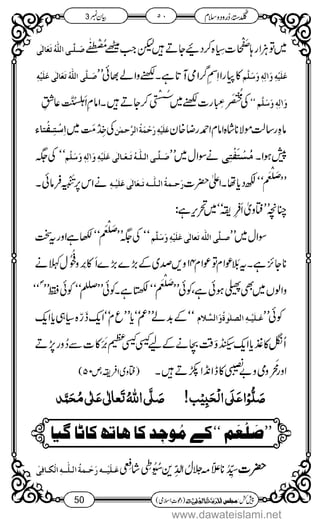 گلدستۂ دُرود و سلام ٥٠ بیان نمبر 3
میں تو ہزار بار صفحات سیاہ کر دیئے جاتے ہیں لیکن جب میٹھے مُصْطَفٰے صَلَّی اللّٰہُ تَعَالٰی
عَلَیْہِ وَاٰلِہٖ وَسَلَّمَ کا پیارا اسمِ گرامی آتا ہے۔ لکھنے والے بھائی ’’صَلَّی اللّٰہُ تَعَالٰی عَلَیْہِ
وَاٰلِہٖ وَسَلَّم‘‘ کی مختصر عبارت لکھنے میں سُستی کر جاتے ہیں۔ امامِ اہلسنّت، عاشقِ
ماہِ رسالت مولانا شاہ امام احمد رضا خان عَلَیْہِ رَحْمَۃُ الرَّحْمٰن کی خدمت میں اِسْتِفْتَاء
پیش ہوا۔ مُسْتَفْتِی نے سوال میں ’’صَلَّی اللّٰہُ تَعَالٰی عَلَیْہِ وَاٰلِہٖ وَسَلَّمَ‘‘ کی جگہ
’’صَلْعَم‘‘ لکھ دیا تھا۔ اعلیٰ حضرت عَلَیْہِ رَحْمَۃُ اللّٰہِ تَعَالٰی نے اس پر تنبیہ فرمائی۔
چنانچہ ’’فتاویٰ اَفریقہ‘‘ میں تحریر ہے:
سوال میں ’’صلی اللّٰہ تعالٰی علیہ وسلّم‘‘ کی جگہ ’’صَلْعَم‘‘ لکھا ہے اور یہ سخت
ناجائز ہے۔ یہ بلا عوام تو عوام ۱۴ ویں صدی کے بڑے بڑے اکابر و فُحُول کہلانے
والوں میں بھی پھیلی ہوئی ہے، کوئی ’’صَلْعَم‘‘ لکھتا ہے۔ کوئی ’’صللم‘‘ کوئی فقط ’’ص‘‘
کوئی ’’علیہ الصلوٰۃ والسلام‘‘ کے بدلے ’’عم‘‘ یا ’’ع م‘‘ ایک ذرّہ سیاہی یا ایک
اُنگل کاغذ یا ایک سیکنڈ وقت بچانے کے لیے کیسی کیسی عظیم برکات سے دُور پڑتے
اور محرومی و بے نصیبی کا ڈانڈا پکڑتے ہیں۔ (فتاویٰ افریقہ، ص ۵۰)
صَلُّوْا عَلَی الْحَبِیْب! صَلَّی اللّٰہُ تَعَالٰی عَلٰی مُحَمَّد
’’صَلْعَم‘‘ کے مُوجِد کا ھاتھ کاٹا گیا
حضرت سیّدنا علامہ جلال الدین سُیُوطی شافعی عَلَیْہِ رَحْمَۃُ اللّٰہِ الْکَافِی
50
www.dawateislami.net